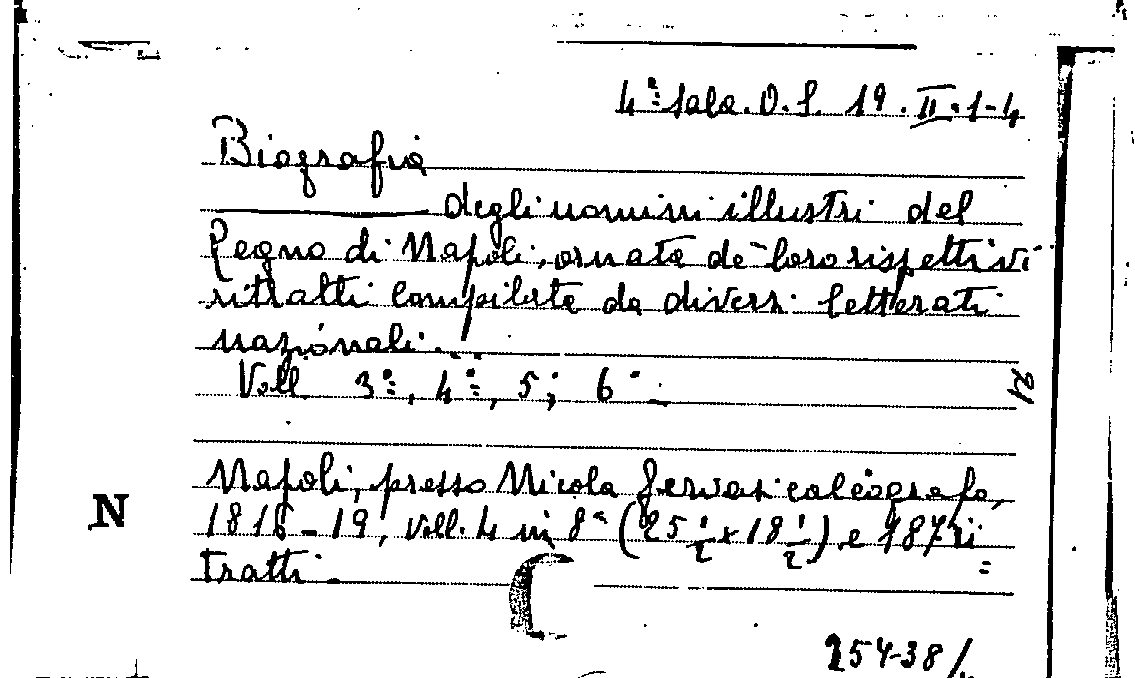 4ª Sala. O. S. 19. II. 1-4
Biografia
degli uomini illustri del
Regno di Napoli, ornata de' loro rispettivi
ritratti compilata da diversi letterati
nazionali...
Voll. 3º, 4º, 5º, 6º
21
Napoli, presso Nicola Gervasi calcografo,
N
1816-19, voll. 4 in 8º (25 1/2 x 18 1/2) e 187 ri=
tratti.
25438/